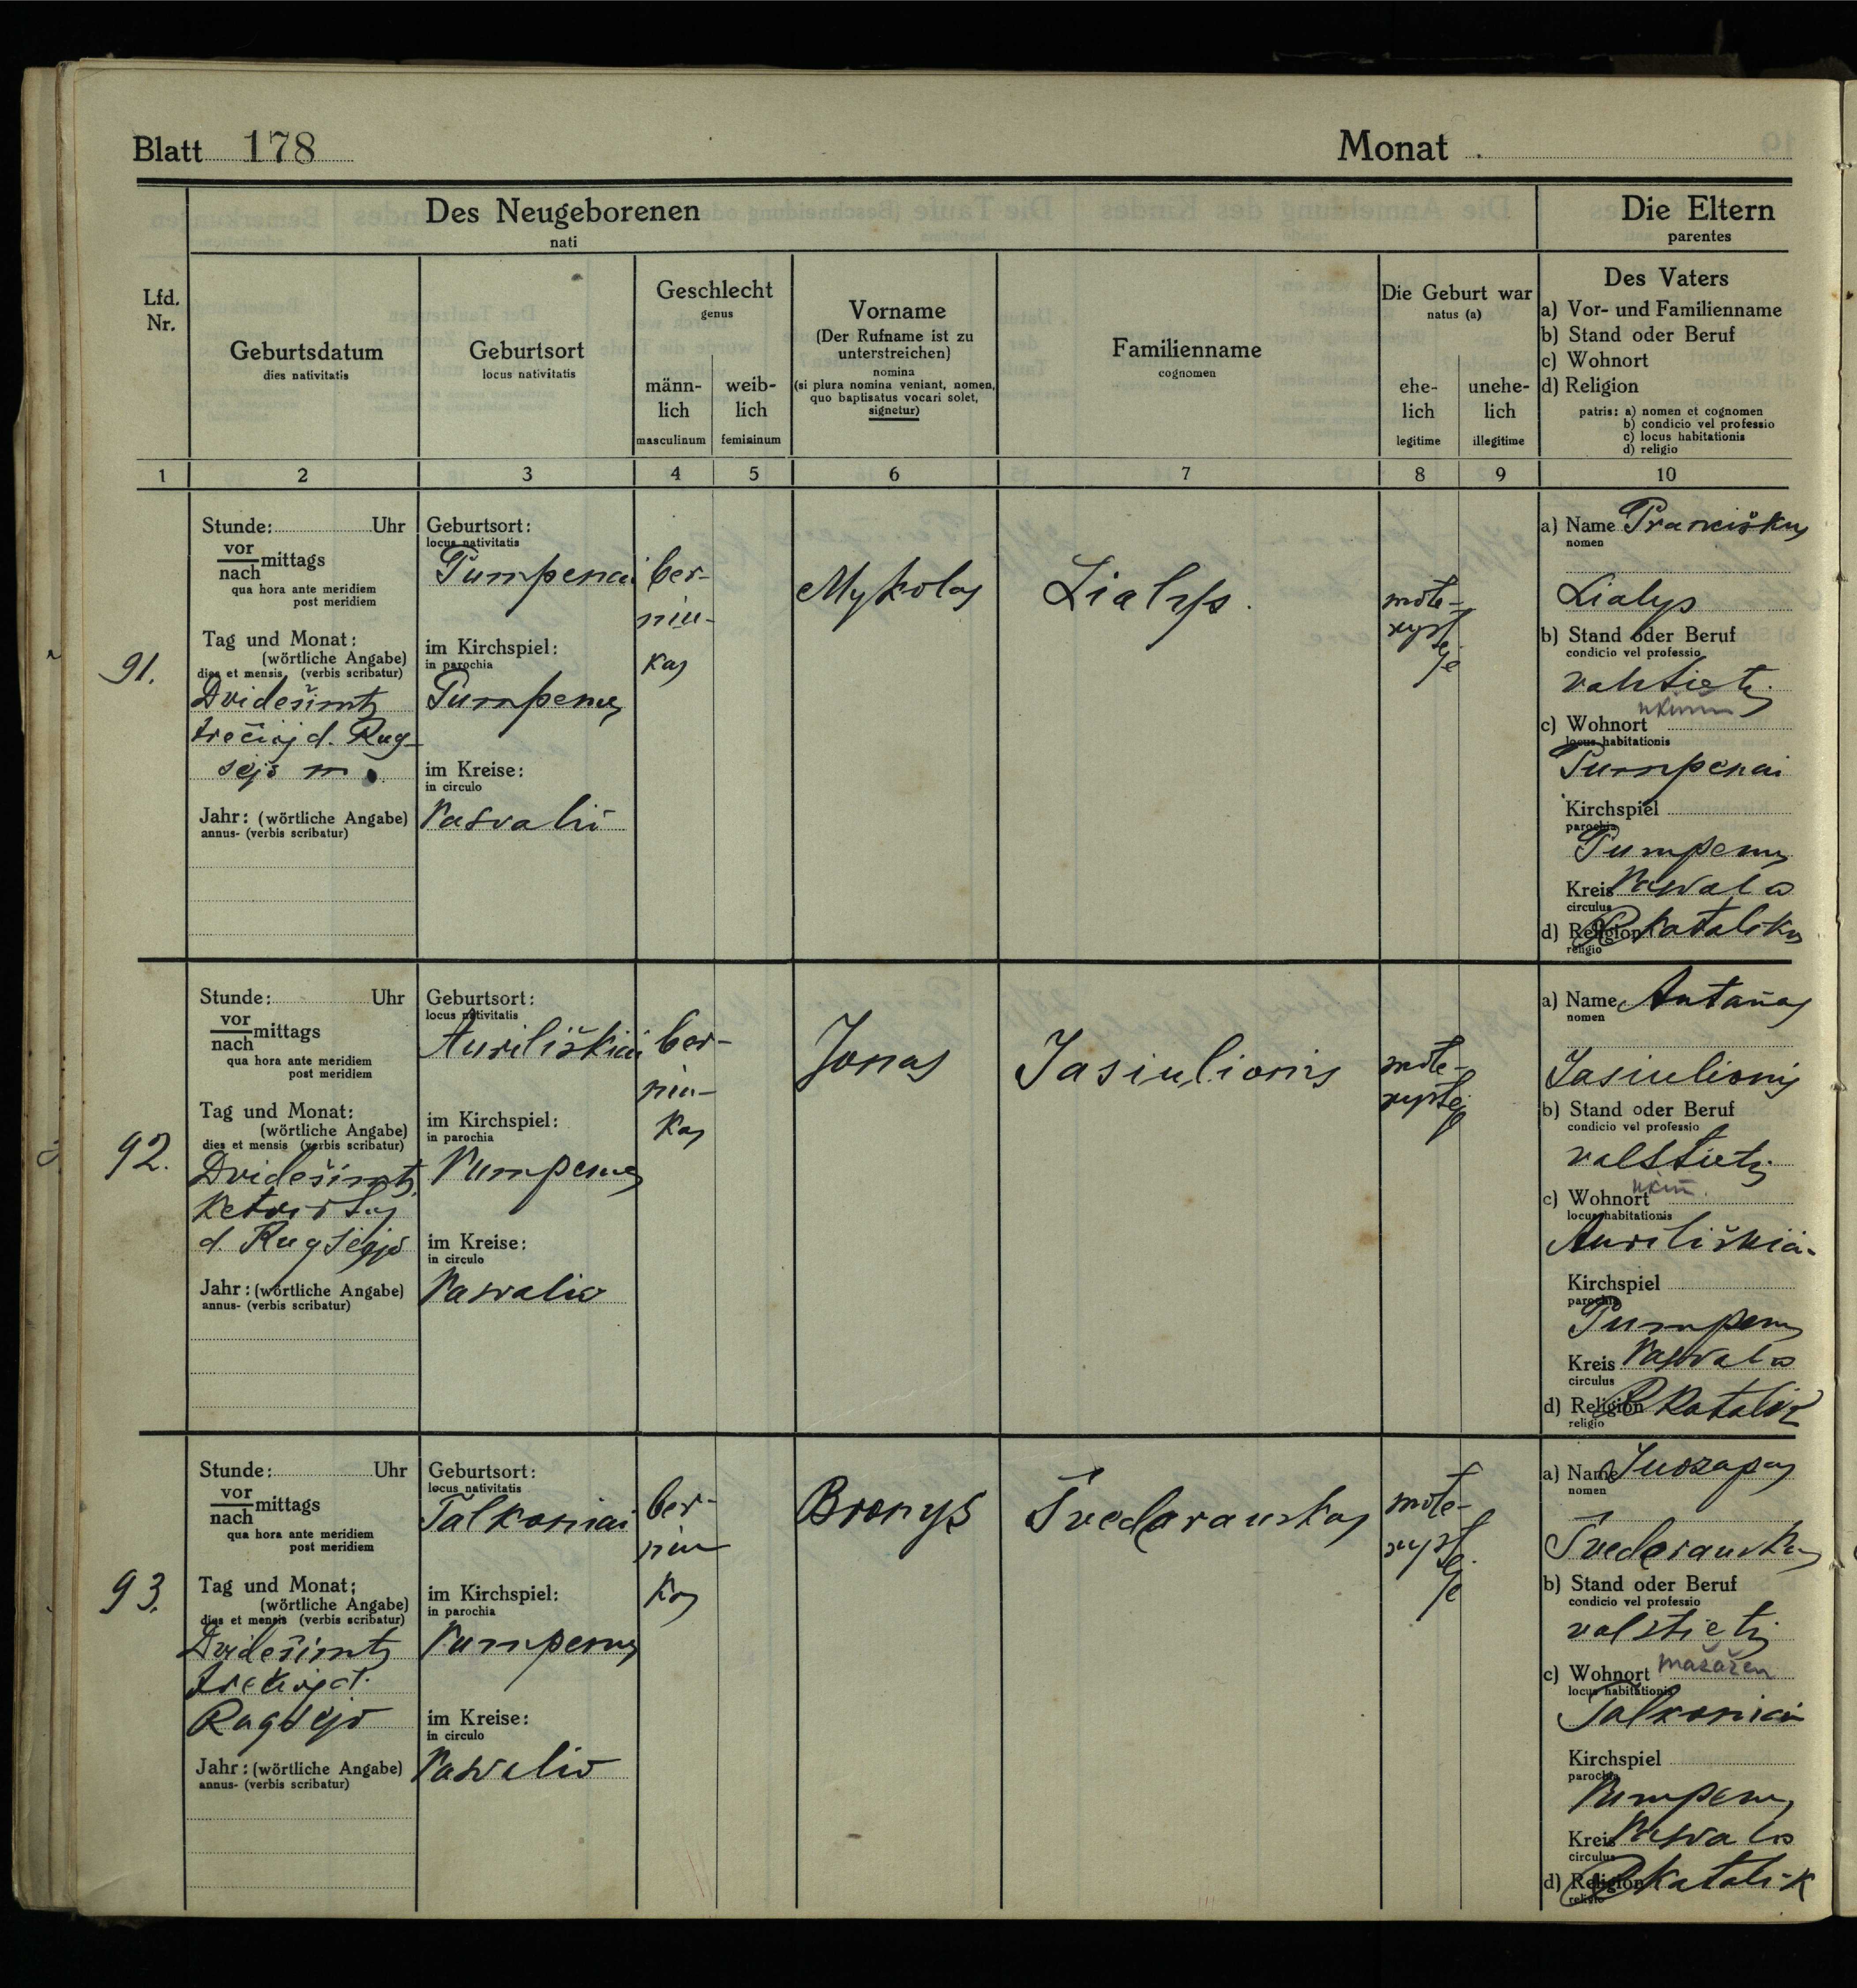 Blatt 178
Monat
Des Neugeborenen
nati
Die Eltern
parentes
Lfd.
Nr.
Geburtsdatum
dies nativitatis
Geburtsort
locus nativitatis
Geschlecht
genus
männ-
lich
masculinum
weib-
lich
femininum
Vorname
(Der Rufname ist zu
unterstreichen)
nomina
(si plura nomina veniant, nomen,
quo baptisatus vocari solet,
signetur)
Familienname
cognomen
Die Geburt war
natus (a)
ehe-
lich
legitime
unehe-
lich
illegitime
Des Vaters
a) Vor- und Familienname
b) Stand oder Beruf
c) Wohnort
d) Religion
patris: a) nomen et cognomen
b) condicio vel professio
c) locus habitationis
d) religio
1 2 3 4 5 6 7 8 9 10
91.
Stunde: Uhr
vor
nach mittags
qua hora ante meridiem
post meridiem
Tag und Monat:
(wörtliche Angabe)
dies et mensis (verbis scribatur)
Dvidešimts
trečioj d. Rug-
sėjo m.
Jahr: (wörtliche Angabe)
annus- (verbis scribatur)
Geburtsort:
locus nativitatis
Pumpenai
im Kirchspiel:
in parochia
Pumpenų
im Kreise:
in circulo
Pasvalio
ber-
niu-
kas
Mykolas
Lialys.
mote-
ryst
ėje
a) Name Pranciškus
nomen
Lialys
b) Stand oder Beruf
condicio vel professio
valstietis
c) Wohnort
locus habitationis
Pumpenai
Kirchspiel
parochia
Pumpenų
Kreis Pasvalio
circulus
d) Religion R Katalikas
religio
92.
Stunde: Uhr
vor
nach mittags
qua hora ante meridiem
post meridiem
Tag und Monat:
(wörtliche Angabe)
dies et mensis (verbis scribatur)
Dvidešimts
ketvirtas
d. Rugsėjo
Jahr: (wörtliche Angabe)
annus- (verbis scribatur)
Geburtsort:
locus nativitatis
Auriliškiai
im Kirchspiel:
in parochia
Pumpenų
im Kreise:
in circulo
Pasvalio
ber-
niu-
kas
Jonas
Jasiulionis
mote-
rystėj
a) Name Antanas
nomen
Jasiulionis
b) Stand oder Beruf
condicio vel professio
valstietis
c) Wohnort
locus habitationis
Auriliškiai
Kirchspiel
parochia
Pumpenų
Kreis Pasvalio
circulus
d) Religion R Katalik
religio
93.
Stunde: Uhr
vor
nach mittags
qua hora ante meridiem
post meridiem
Tag und Monat:
(wörtliche Angabe)
dies et mensis (verbis scribatur)
Dvidešimts
trečioj d.
Rugsėjo
Jahr: (wörtliche Angabe)
annus- (verbis scribatur)
Geburtsort:
locus nativitatis
Talkoniai
im Kirchspiel:
in parochia
Pumpenų
im Kreise:
in circulo
Pasvalio
ber-
niu
kas
Bronys
Švedarauskas
mote-
ryst
ėje
a) Name Juozapas
nomen
Švedarauskas
b) Stand oder Beruf
condicio vel professio
valstietis
c) Wohnort mažažem
locus habitationis
Talkoniai
Kirchspiel
parochia
Pumpenų
Kreis Pasvalio
circulus
d) Religion R Katalik
religio